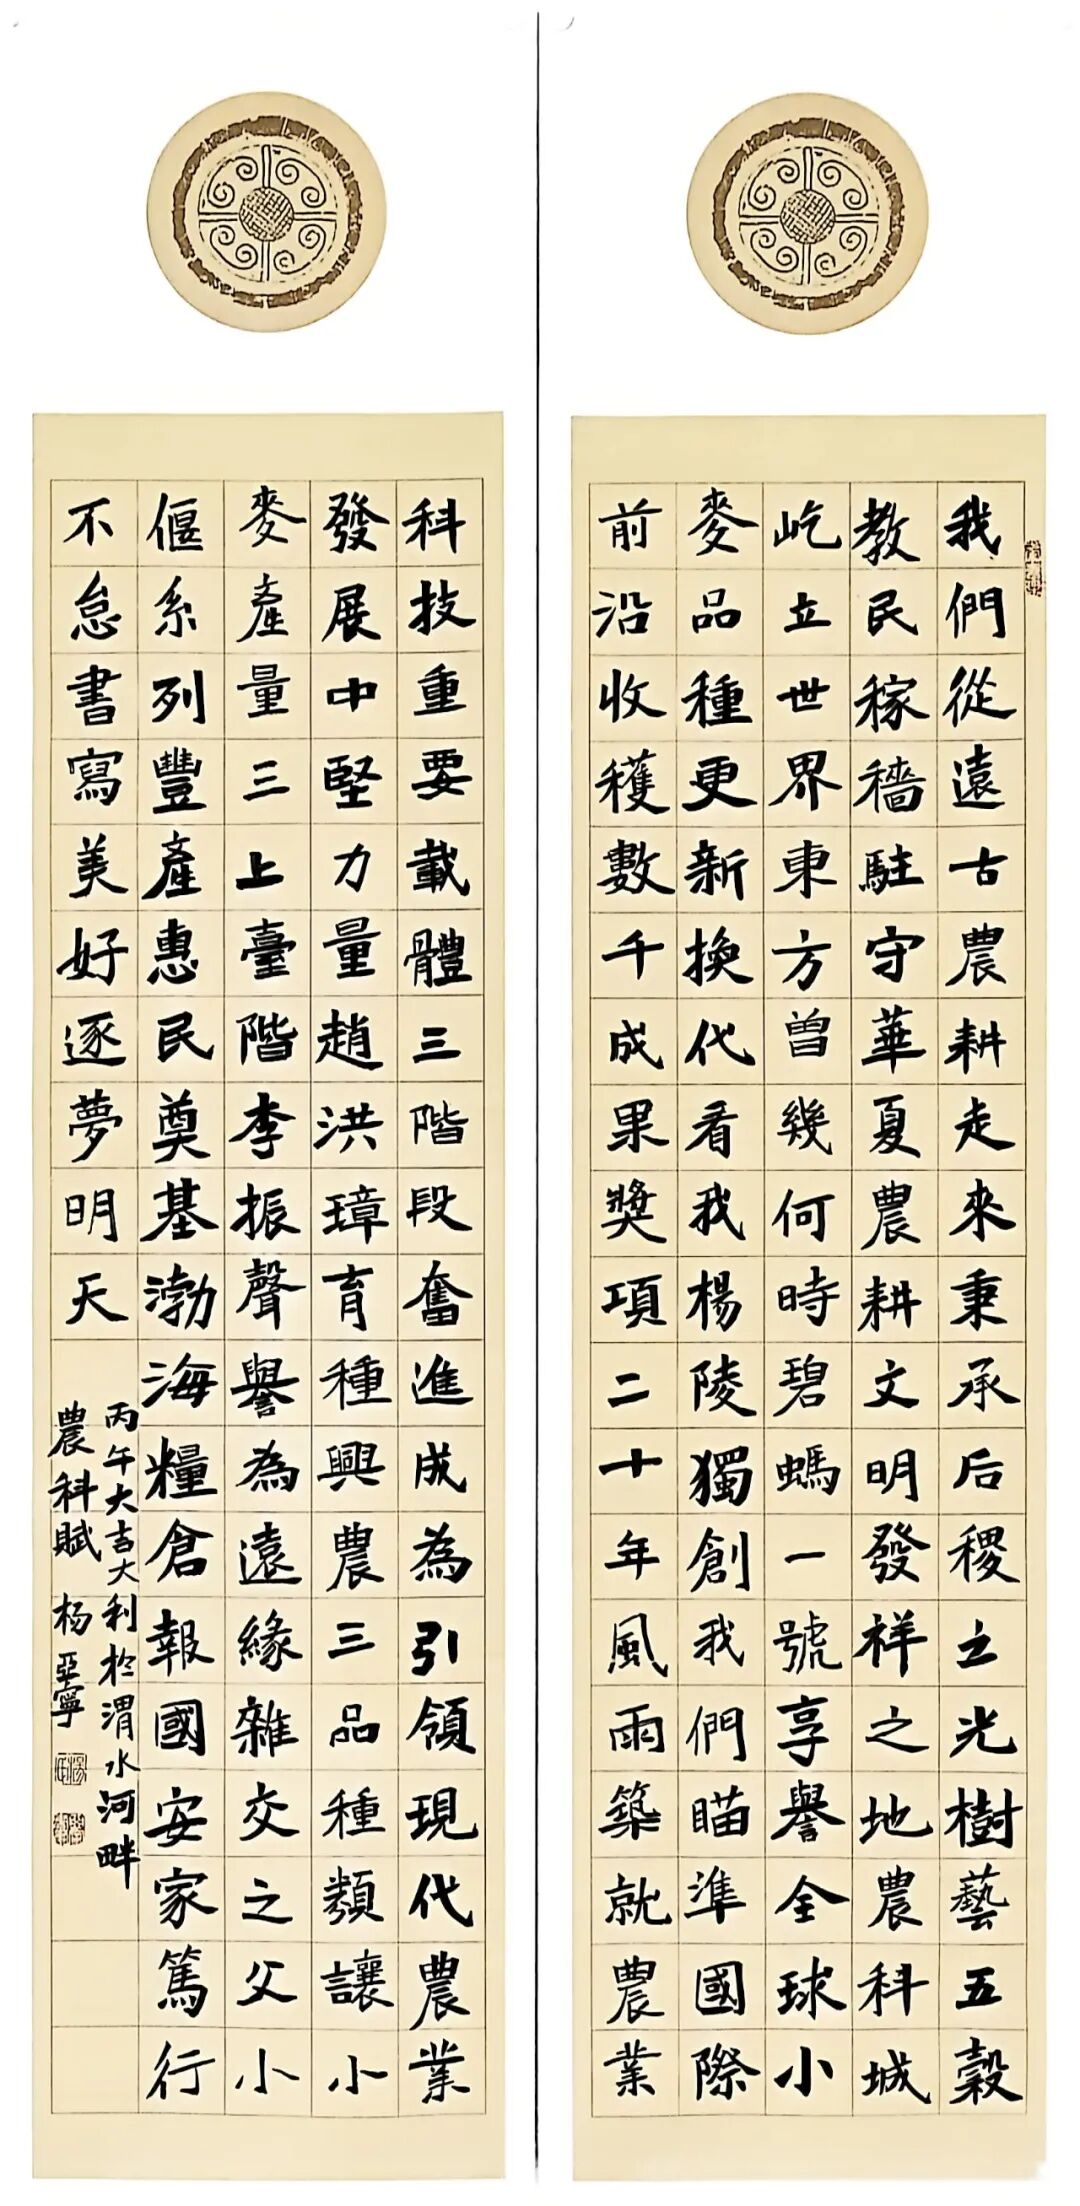 我們從遠古農耕走來秉承后稷之光樹藝五穀
教民稼穡駐守華夏農耕文明發祥之地農科城
屹立世界東方曾幾何時碧螞一號享譽全球小
麥品種更新換代看我楊陵獨創我們瞄準國際
前沿收穫數千成果獎項二十年風雨築就農業
科技重要載體三階段奮進成為引領現代農業
發展中堅力量趙洪璋育種興農三品種類讓小
麥產量三上臺階李振聲譽為遠緣雜交之父小
偃系列豐產惠民奠基渤海糧倉報國安家篤行
不怠書寫美好逐夢明天
丙午大吉大利於渭水河畔
農科賦 杨亞寧